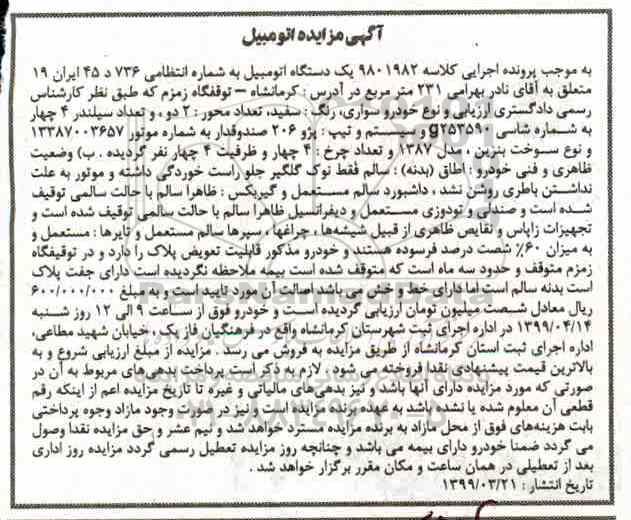 آگهی مزایده اتومبیل
به موجب پرونده اجرایی کلاسه ۹۸۰۱۹۸۲ یک دستگاه اتومبیل به شماره انتظامی ۷۳۶ د ۴۵ ایران ۱۹
متعلق به آقای نادر بهرامی ۲۳۱ متر مربع در آدرس : کرمانشاه – توقفگاه زمزم که طبق نظر کارشناس
رسمی دادگستری ارزیابی و نوع خودرو سواری، رنگ : سفید، تعداد محور : ۲ دو ، و تعداد سیلندر ۴ چهار
به شماره شاسی و سیستم و تیپ : پژو ۲۰۶ صندوقدار به شماره موتور ۱۳۳۸۷۰۰۳۶۵۷
و نوع سوخت بنزین ، مدل ۱۳۸۷ و تعداد چرخ : ۴ چهار و ظرفیت ۴ چهار نفر گردیده . ب) وضعیت
ظاهری و فنی خودرو : اطاق (بدنه) : سالم فقط نوک گلگیر جلو راست خوردگی داشته و موتور به علت
نداشتن باطری روشن نشد ، داشبورد سالم مستعمل و گیربکس : ظاهرا سالم با حالت سالمی توقیف
شده است و صندلی و تودوزی مستعمل و دیفرانسیل ظاهرا سالم با حالت سالمی توقیف شده است و
تجهیزات زاپاس و نقایص ظاهری از قبیل شیشه‌ها ، چراغها ، سپرها سالم مستعمل و تایرها : مستعمل و
به میزان ۶۰٪ شصت درصد فرسوده هستند و خودرو مذکور قابلیت تعویض پلاک را دارد و در توقیفگاه
زمزم متوقف و حدود سه ماه است که متوقف شده است بیمه ملاحظه نگردیده است دارای جفت پلاک
است بدنه سالم است اما دارای خط و خش می باشد اصالت آن مورد تایید است و به مبلغ ۶۰۰/۰۰۰/۰۰۰
ریال معادل شصت میلیون تومان ارزیابی گردیده است و خودرو فوق از ساعت ۹ الی ۱۲ روز شنبه
۱۳۹۹/۰۴/۱۴ در اداره اجرای ثبت شهرستان کرمانشاه واقع در فرهنگیان فاز یک ، خیابان شهید مطاعی،
اداره اجرای ثبت استان کرمانشاه از طریق مزایده به فروش می رسد . مزایده از مبلغ ارزیابی شروع و به
بالاترین قیمت پیشنهادی نقدا فروخته می شود ، لازم به ذکر است پرداخت بدهی‌های مربوط به آن در
صورتی که مورد مزایده دارای آنها باشد و نیز بدهی‌های مالیاتی و غیره تا تاریخ مزایده اعم از اینکه رقم
قطعی آن معلوم شده یا نشده باشد به عهده برنده مزایده است و نیز در صورت وجود مازاد وجوه پرداختی
بابت هزینه‌های فوق از محل مازاد به برنده مزایده مسترد خواهد شد و نیم عشر و حق مزایده نقدا وصول
می گردد ضمنا خودرو دارای بیمه می باشد و چنانچه روز مزایده تعطیل رسمی گردد مزایده روز اداری
بعد از تعطیلی در همان ساعت و مکان مقرر برگزار خواهد شد .
تاریخ انتشار : ۱۳۹۹/۰۳/۲۱